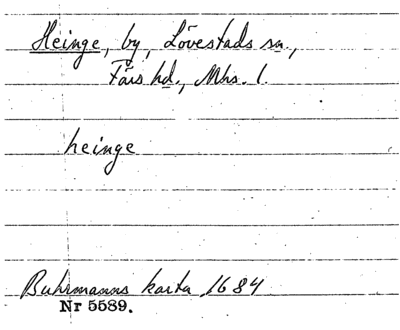 Heinge, by, Lövestads sn.,
Färs hd., Mhs. l.
heinge
Buhrmanns karta 1684
Nr 5589.